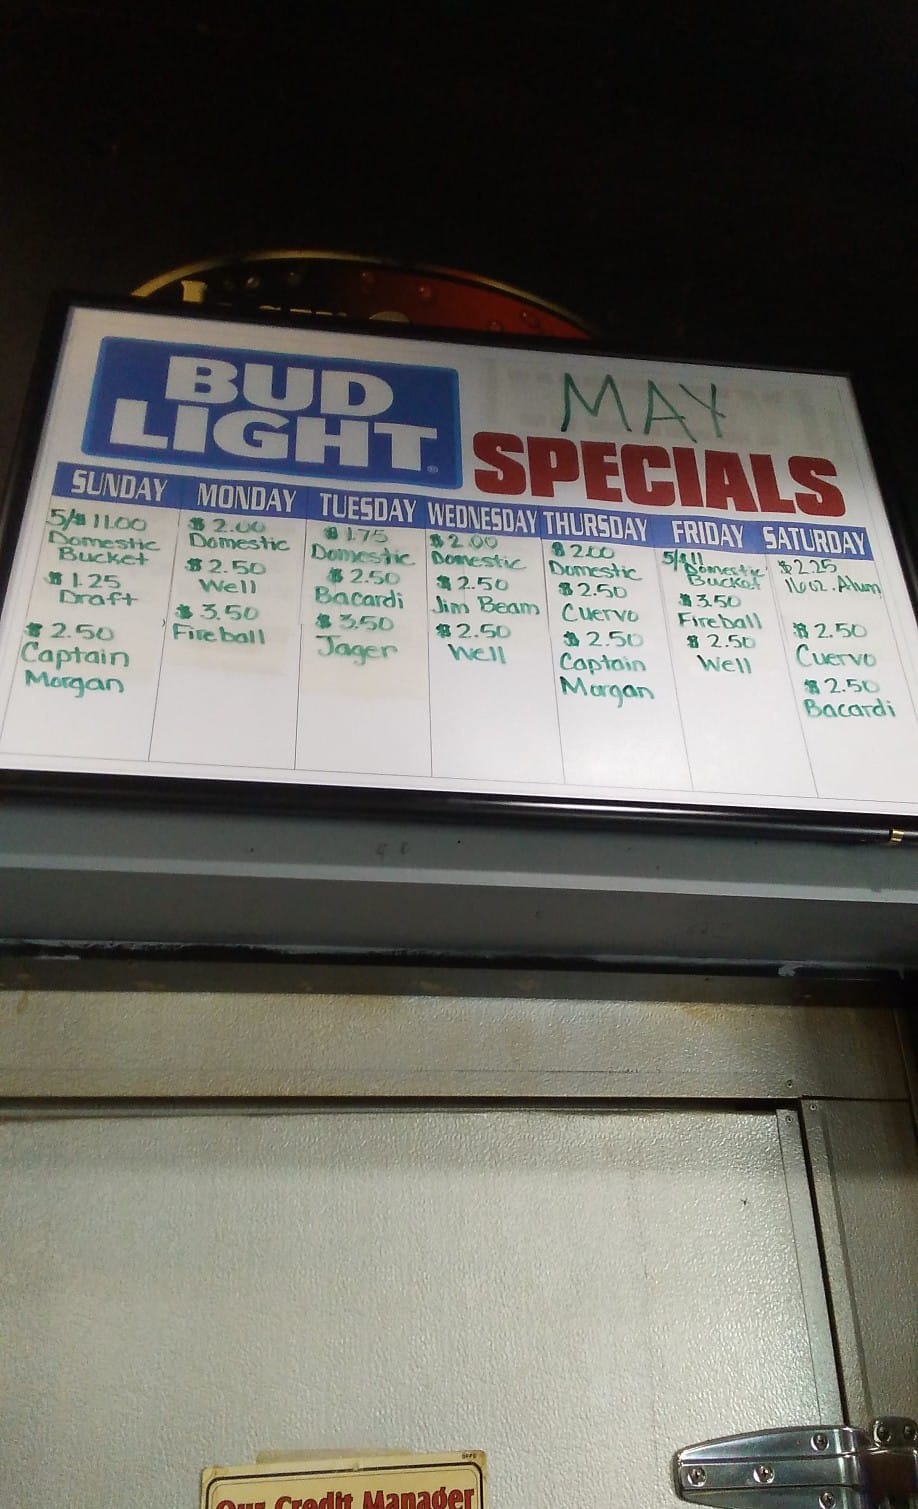 BUD
LIGHT
MAY
SPECIALS
SUNDAY
5/$11.00
Domestic
Bucket
$1.25
Draft
$2.50
Captain
Morgan
MONDAY
$2.00
Domestic
$2.50
Well
$3.50
Fireball
TUESDAY
$1.75
Domestic
$2.50
Bacardi
$3.50
Jager
WEDNESDAY
$2.00
Domestic
$2.50
Jim Beam
$2.50
Well
THURSDAY
$2.00
Domestic
$2.50
Cuervo
$2.50
Captain
Morgan
FRIDAY
5/$11
Domestic
Bucket
$3.50
Fireball
$2.50
Well
SATURDAY
$2.25
16oz. Alum
$2.50
Cuervo
$2.50
Bacardi
Our Credit Manager